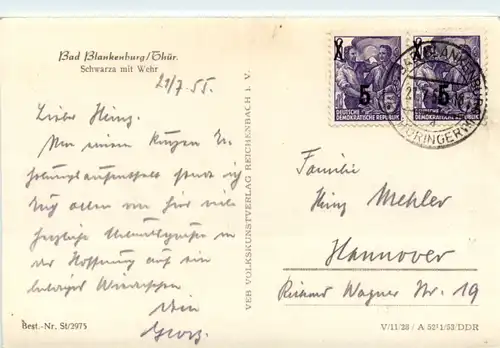 Bad Blankenburg/Thür.
Schwarza mit Wehr
21/7.55.
Lieber Heinz.
Von meinem kurzen Er-
holungsaufenthalt sende ich
Euch allen von hier viele
herzliche Urlaubsgrüße in
der Hoffnung auf ein
baldiges Wiedersehen
Dein
Georg.
Best.-Nr. St/2975
VEB VOLKSKUNSTVERLAG REICHENBACH I. V.
8
5
DEUTSCHE
DEMOKRATISCHE REPUBLIK
8
5
DEUTSCHE
DEMOKRATISCHE REPUBLIK
BAD BLANKENBURG
THÜRINGERW
Familie
Heinz Mehler
Hannover
Richard Wagner Str. 19
V/11/28 / A 5211/53/DDR